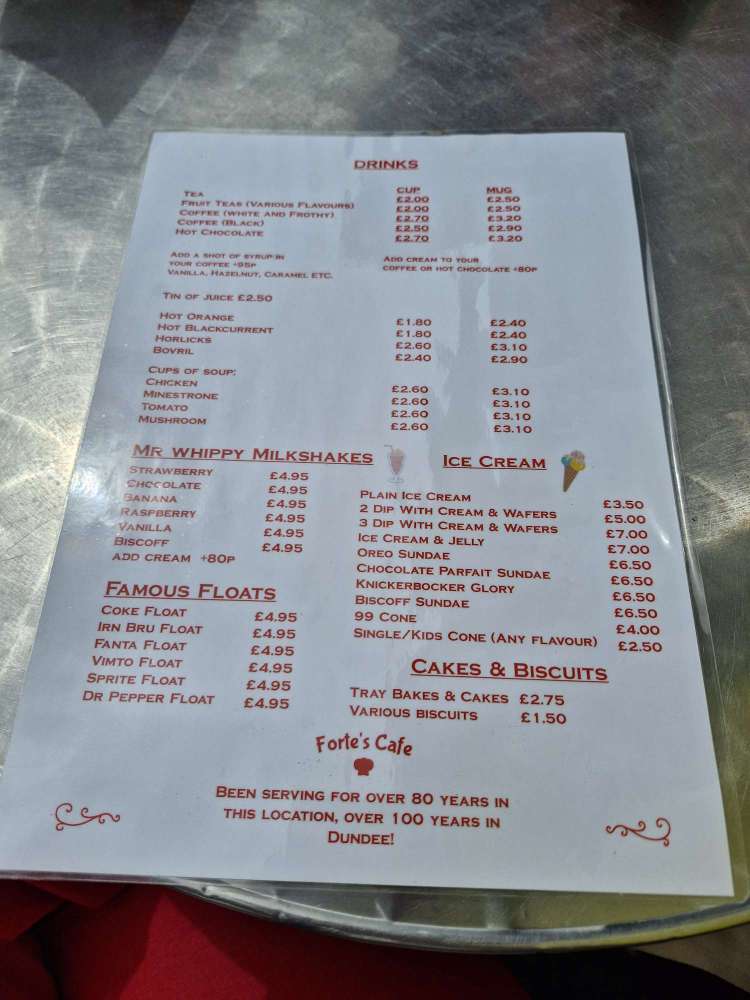 DRINKS
CUP MUG
TEA £2.00 £2.50
FRUIT TEAS (VARIOUS FLAVOURS) £2.00 £2.50
COFFEE (WHITE AND FROTHY) £2.70 £3.20
COFFEE (BLACK) £2.50 £2.90
HOT CHOCOLATE £2.70 £3.20
ADD A SHOT OF SYRUP IN
YOUR COFFEE +95P
VANILLA, HAZELNUT, CARAMEL ETC.
ADD CREAM TO YOUR
COFFEE OR HOT CHOCOLATE +80P
TIN OF JUICE £2.50
HOT ORANGE £1.80 £2.40
HOT BLACKCURRENT £1.80 £2.40
HORLICKS £2.60 £3.10
BOVRIL £2.40 £2.90
CUPS OF SOUP:
CHICKEN £2.60 £3.10
MINESTRONE £2.60 £3.10
TOMATO £2.60 £3.10
MUSHROOM £2.60 £3.10
MR WHIPPY MILKSHAKES
STRAWBERRY £4.95
CHOCOLATE £4.95
BANANA £4.95
RASPBERRY £4.95
VANILLA £4.95
BISCOFF £4.95
ADD CREAM +80P
FAMOUS FLOATS
COKE FLOAT £4.95
IRN BRU FLOAT £4.95
FANTA FLOAT £4.95
VIMTO FLOAT £4.95
SPRITE FLOAT £4.95
DR PEPPER FLOAT £4.95
ICE CREAM
PLAIN ICE CREAM £3.50
2 DIP WITH CREAM & WAFERS £5.00
3 DIP WITH CREAM & WAFERS £7.00
ICE CREAM & JELLY £7.00
OREO SUNDAE £6.50
CHOCOLATE PARFAIT SUNDAE £6.50
KNICKERBOCKER GLORY £6.50
BISCOFF SUNDAE £6.50
99 CONE £4.00
SINGLE/KIDS CONE (ANY FLAVOUR) £2.50
CAKES & BISCUITS
TRAY BAKES & CAKES £2.75
VARIOUS BISCUITS £1.50
Forte's Cafe
BEEN SERVING FOR OVER 80 YEARS IN
THIS LOCATION, OVER 100 YEARS IN
DUNDEE!